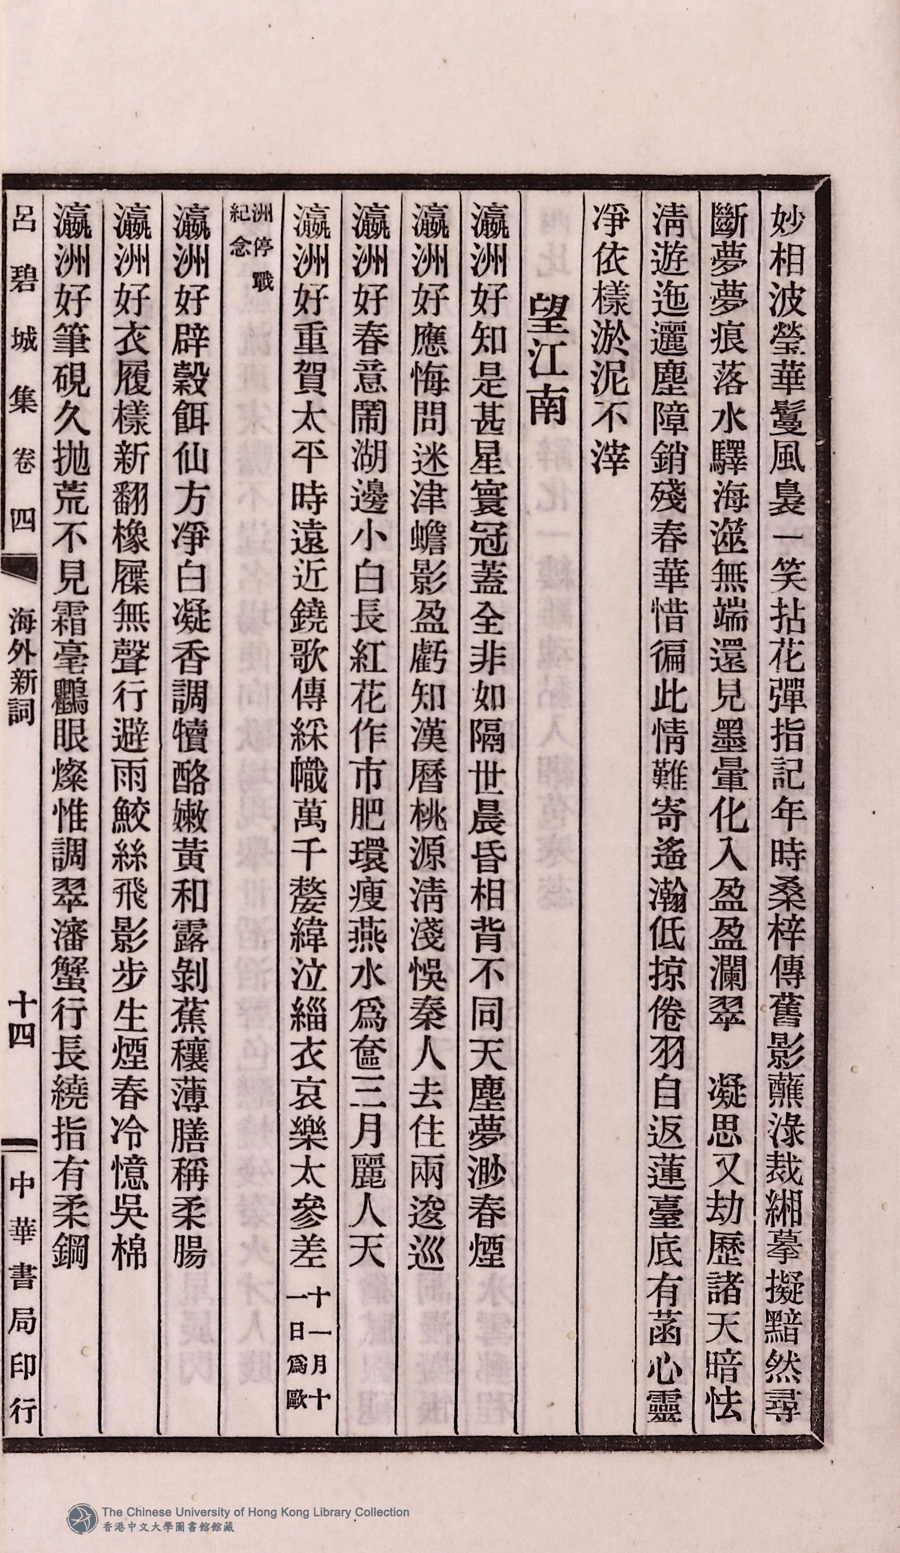 妙相波瑩華鬘風裊一笑拈花彈指記年時桑梓傳舊影蘸淥裁緗摹擬黯然尋
斷夢夢痕落水驛海澨無端還見墨暈化入盈盈瀾翠　凝思又劫歷諸天暗怯
淸遊迤邐塵障銷殘春華惜徧此情難寄遙瀚低掠倦羽自返蓮臺底有菡心靈
凈依樣淤泥不滓
望江南
瀛洲好知是甚星寰冠蓋全非如隔世晨昏相背不同天塵夢渺春煙
瀛洲好應悔問迷津蟾影盈虧知漢曆桃源淸淺悞秦人去住兩逡巡
瀛洲好春意鬧湖邊小白長紅花作市肥環瘦燕水爲奩三月麗人天
瀛洲好重賀太平時遠近鐃歌傳綵幟萬千嫠緯泣緇衣哀樂太參差十一月十一日爲歐
洲停戰紀念
瀛洲好辟穀餌仙方凈白凝香調犢酪嫩黃和露剝蕉穰薄膳稱柔腸
瀛洲好衣履樣新翻橡屧無聲行避雨鮫絲飛影步生煙春冷憶吳棉
瀛洲好筆硯久拋荒不見霜毫鸜眼燦惟調翠瀋蟹行長繞指有柔鋼
呂碧城集卷四
海外新詞
十四
中華書局印行
The Chinese University of Hong Kong Library Collection
香港中文大學圖書館館藏